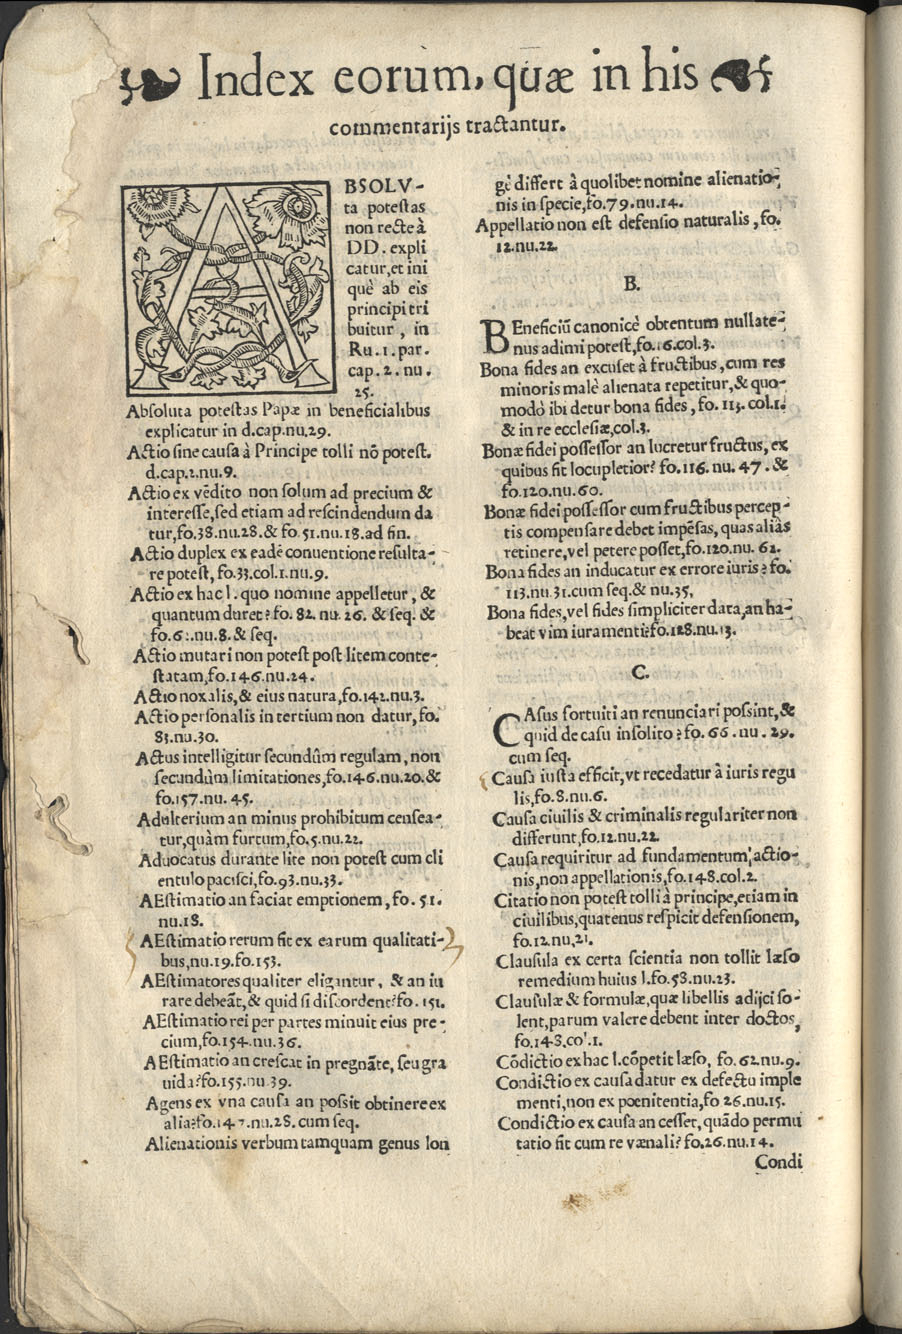 Index eorum, quæ in his
commentarijs tractantur.
ABSOLV-
ta potestas
non recte à
DD. expli
catur, et ini
què ab eis
principi tri
buitur, in
Ru. 1. par.
cap. 2. nu.
25.
Absoluta potestas Papæ in beneficialibus
explicatur in d.cap.nu.29.
Actio sine causa à Principe tolli nō potest.
d.cap.2.nu.9.
Actio ex vēdito non solum ad precium &
interesse, sed etiam ad rescindendum da
tur, fo.38.nu.28.& fo.51.nu.18.ad fin.
Actio duplex ex eadē conuentione resulta-
re potest, fo.33.col.1.nu.9.
Actio ex hac l. quo nomine appelletur, &
quantum duret? fo. 82. nu. 26. & seq. &
nu.8. & seq.
Actio mutari non potest post litem conte-
statam, fo.146.nu.24.
Actio noxalis, & eius natura, fo.142.nu.3.
Actio personalis in tertium non datur, fo.
83.nu.30.
Actus intelligitur secundùm regulam, non
secundùm limitationes, fo.146.nu.20.&
fo.157.nu. 45.
Adulterium an minus prohibitum censea-
tur, quàm furtum, fo.5.nu.22.
Aduocatus durante lite non potest cum cli
entulo pacisci, fo.93.nu.33.
AEstimatio an faciat emptionem, fo. 51.
nu.18.
AEstimatio rerum fit ex earum qualitati-
bus, nu.19.fo.153.
AEstimatores qualiter eligantur, & an iu
rare debeāt, & quid si discordent? fo. 151.
AEstimatio rei per partes minuit eius pre-
cium, fo.154.nu.36.
AEstimatio an crescat in pregnāte, seu gra
uida? fo.155.nu.39.
Agens ex vna causa an possit obtinere ex
alia? fo.147.nu.28. cum seq.
Alienationis verbum tamquam genus lon
gè differt à quolibet nomine alienatio-
nis in specie, fo.79.nu.14.
Appellatio non est defensio naturalis, fo.
12.nu.22.
B.
BEneficiū canonicè obtentum nullate-
nus adimi potest, fo.16.col.3.
Bona fides an excuset à fructibus, cum res
minoris malè alienata repetitur, & quo-
modo ibi detur bona fides, fo. 113. col.1.
& in re ecclesiæ, col.3.
Bonæ fidei possessor an lucretur fructus, ex
quibus fit locupletior? fo.116. nu. 47. &
fo.120.nu.60.
Bonæ fidei possessor cum fructibus percep-
tis compensare debet impēsas, quas aliàs
retinere, vel petere posset, fo.120.nu. 61.
Bona fides an inducatur ex errore iuris? fo.
113.nu.31.cum seq.& nu.35.
Bona fides, vel fides simpliciter data, an ha-
beat vim iuramenti? fo.128.nu.13.
C.
CAsus fortuiti an renunciari possint, &
quid de casu insolito? fo. 66. nu. 29.
cum seq.
Causa iusta efficit, vt recedatur à iuris regu
lis, fo.8.nu.6.
Causa ciuilis & criminalis regulariter non
differunt, fo.12.nu.22.
Causa requiritur ad fundamentum, actio-
nis, non appellationis, fo.148.col.2.
Citatio non potest tolli à principe, etiam in
ciuilibus, quatenus respicit defensionem,
fo.12.nu.21.
Clausula ex certa scientia non tollit læso
remedium huius l.fo.58.nu.23.
Clausulæ & formulæ, quæ libellis adijci so-
lent, parum valere debent inter doctos,
fo.148.co'.1.
Cōdictio ex hac l. cōpetit læso, fo. 62.nu.9.
Condictio ex causa datur ex defectu imple
menti, non ex pœnitentia, fo 26.nu.15.
Condictio ex causa an cesset, quādo permu
tatio fit cum re vænali? fo.26.nu.14.
Condi